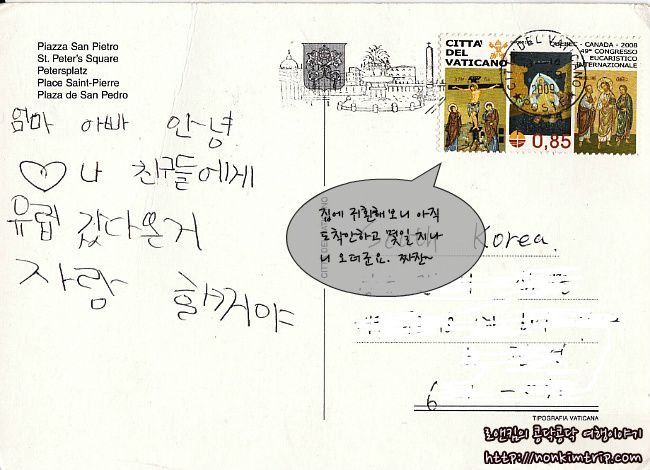 Piazza San Pietro
St. Peter's Square
Petersplatz
Place Saint-Pierre
Plaza de San Pedro
엄마 아빠 안녕
♡ 나 친구들에게
유럽 갔다온거
자랑 할꺼야
CITTÀ DEL VATICANO
QUEBEC - CANADA - 2008
49° CONGRESSO
EUCARISTICO
INTERNAZIONALE
0,85
2009
집에 귀환해보니 아직
도착안하고 몇일 지나
니 오더군요. 짜잔~
South Korea.
6
TIPOGRAFIA VATICANA
로앤킴의 콩닥콩닥 여행이야기
http://nonkimtrip.com